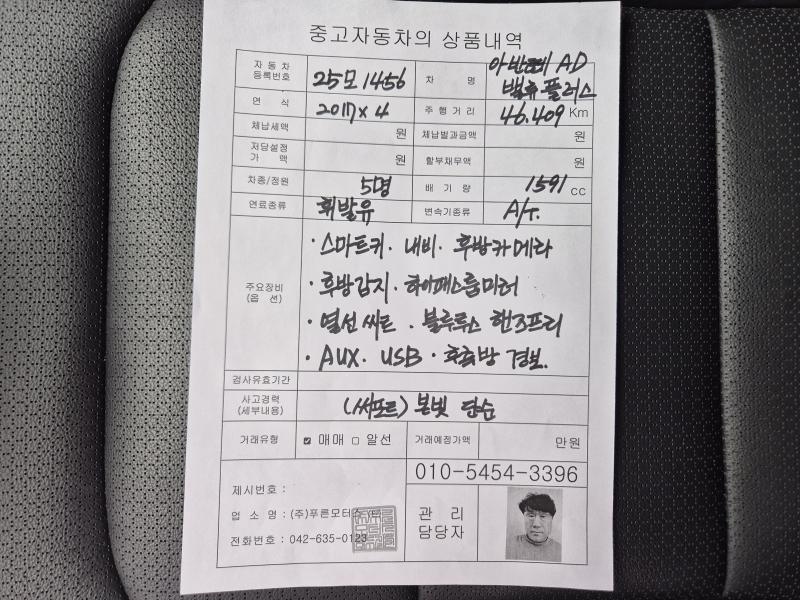 중고자동차의 상품내역
자동차 등록번호 25모1456 차 명 아반떼 AD 밸류플러스
연 식 2017 x 4 주행거리 46.409 Km
체납세액 원 체납벌과금액 원
저당설정 가 액 원 할부채무액 원
차종/정원 5명 배 기 량 1591 CC
연료종류 휘발유 변속기종류 A/T.
주요장비 (옵 션)
· 스마트키. 내비. 후방카메라
· 후방감지. 하이패스룸미러
· 열선씨트. 블루투스 핸즈프리
· AUX. USB.
검사유효기간
사고경력 (세부내용) (써포트) 본넷 단순
거래유형 ☑ 매매 □ 알선 거래예정가액 만원
010-5454-3396
제시번호 :
업 소 명 : (주)푸른모터스
전화번호 : 042-635-0123
관 리 담당자